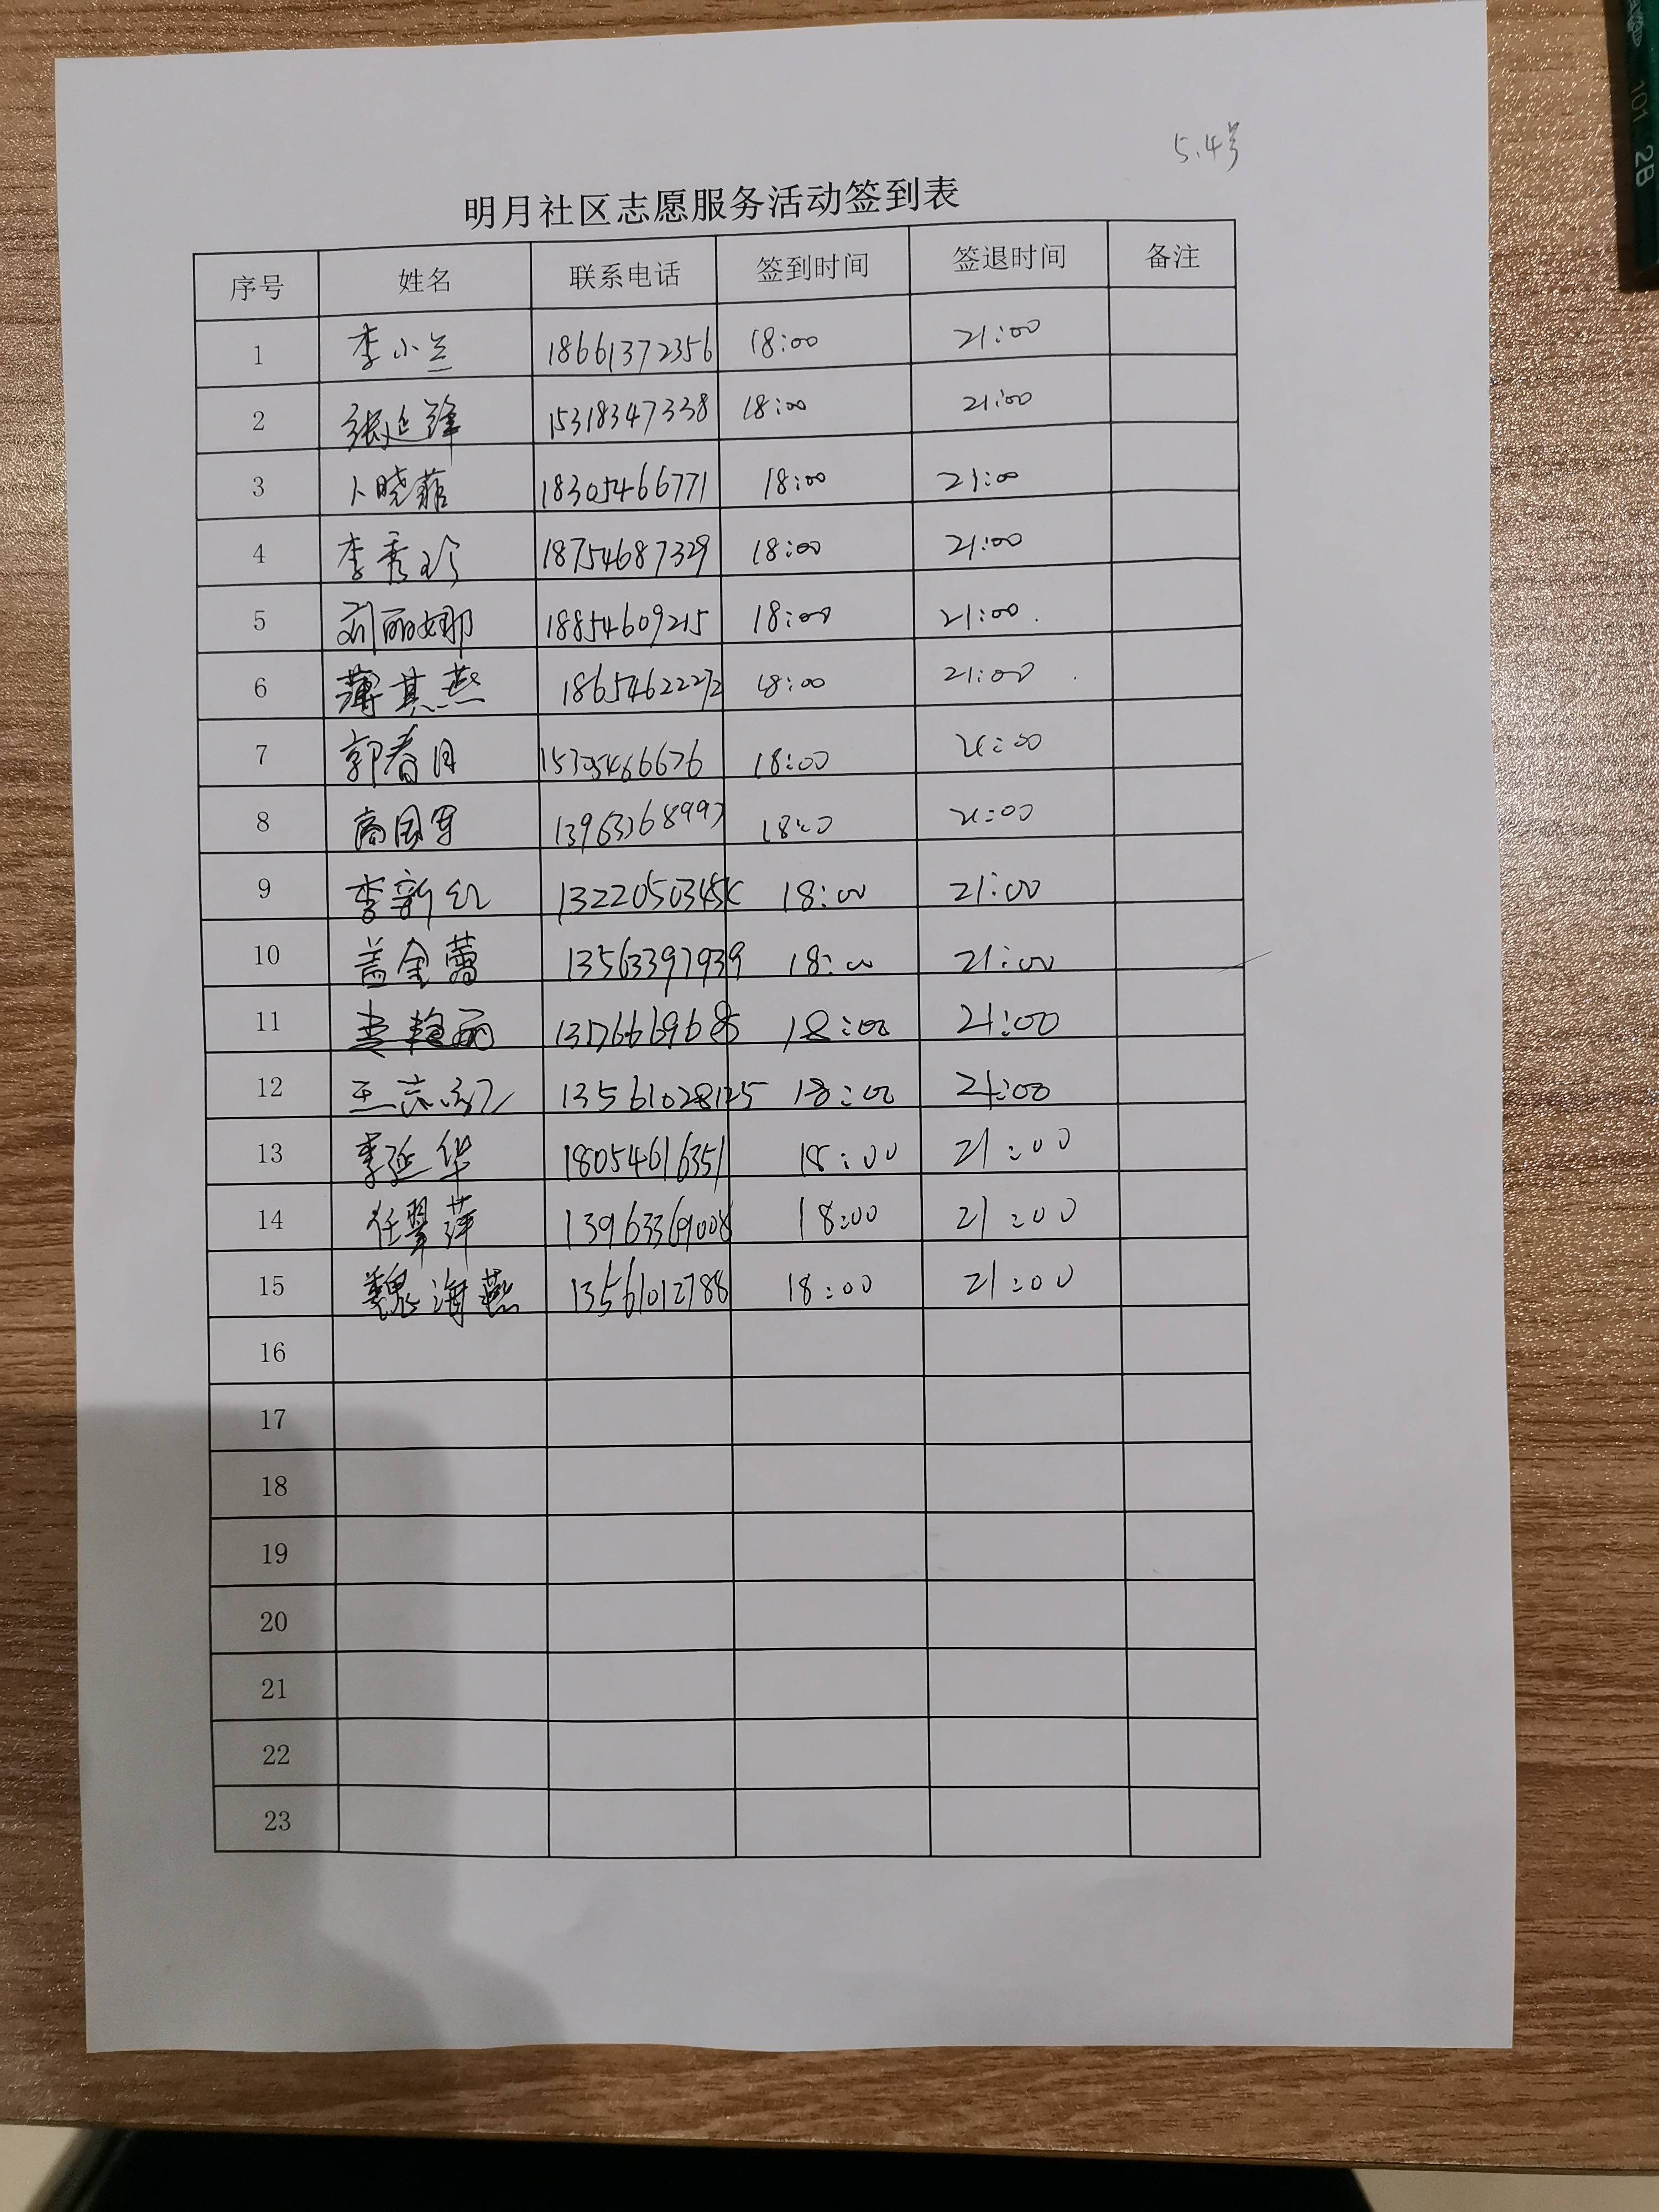 5.4号
明月社区志愿服务活动签到表
序号 姓名 联系电话 签到时间 签退时间 备注
1 李小兰 18661372356 18:00 21:00
2 张延锋 15318347338 18:00 21:00
3 卜晓菲 18305466771 18:00 21:00
4 李秀珍 18754687329 18:00 21:00
5 刘丽娜 18854609215 18:00 21:00
6 薄其燕 18654622272 18:00 21:00
7 郭春月 15305466676 18:00 21:00
8 商国军 13963368997 18:00 21:00
9 李新红 18:00 21:00
10 盖金蕾 13563397939 18:00 21:00
11 李艳丽 18:00 21:00
12 王志 18:00 21:00
13 李延华 18054616351 18:00 21:00
14 任翠萍 13963369008 18:00 21:00
15 魏海燕 13561012788 18:00 21:00
16
17
18
19
20
21
22
23
101 2B